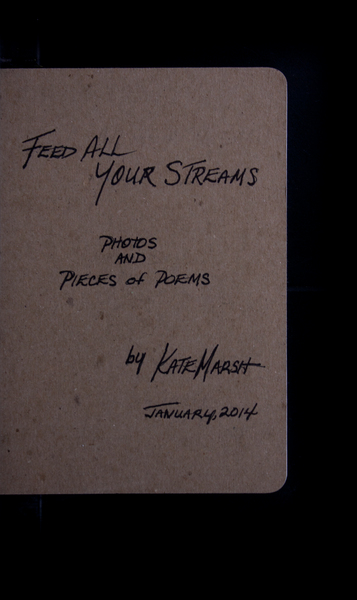 FEED ALL
YOUR STREAMS
PHOTOS
AND
PIECES of POEMS
by KATE MARSH
JANUARY, 2014